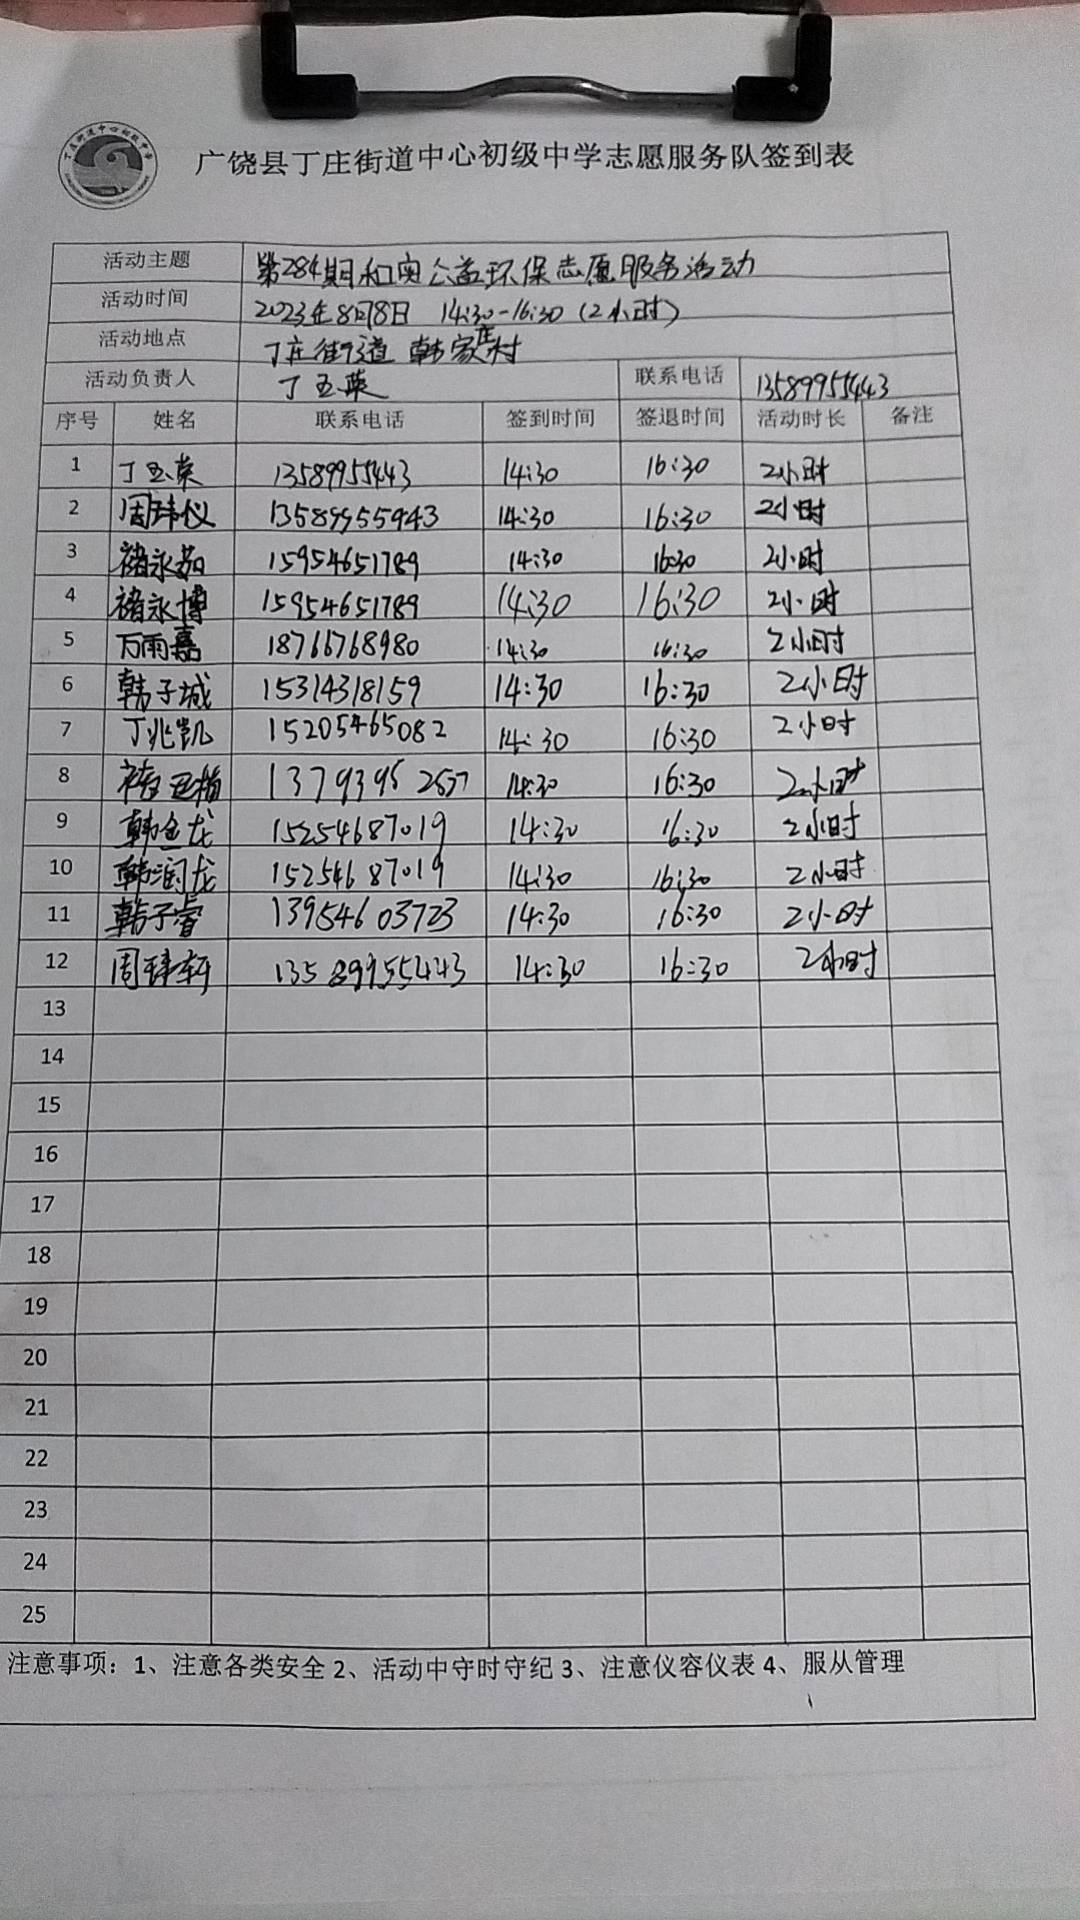 广饶县丁庄街道中心初级中学志愿服务队签到表
活动主题 第284期和奥公益环保志愿服务活动
活动时间 2023年8月8日 14:30-16:30（2小时）
活动地点 丁庄街道 韩家庄村
活动负责人 丁玉英 联系电话 13589955443
序号 姓名 联系电话 签到时间 签退时间 活动时长 备注
1 丁玉英 13589955443 14:30 16:30 2小时
2 周玮仪 13589955943 14:30 16:30 2小时
3 褚永茹 15954651789 14:30 16:30 2小时
4 褚永博 15954651789 14:30 16:30 2小时
5 万雨嘉 18766768980 14:30 16:30 2小时
6 韩子城 15314318159 14:30 16:30 2小时
7 丁兆凯 15205465082 14:30 16:30 2小时
8 13793952577 14:30 16:30 2小时
9 韩金龙 15254687019 14:30 16:30 2小时
10 韩润龙 15254687019 14:30 16:30 2小时
11 韩子睿 13954603723 14:30 16:30 2小时
12 周玮轩 13589955443 14:30 16:30 2小时
13
14
15
16
17
18
19
20
21
22
23
24
25
注意事项：1、注意各类安全 2、活动中守时守纪 3、注意仪容仪表 4、服从管理